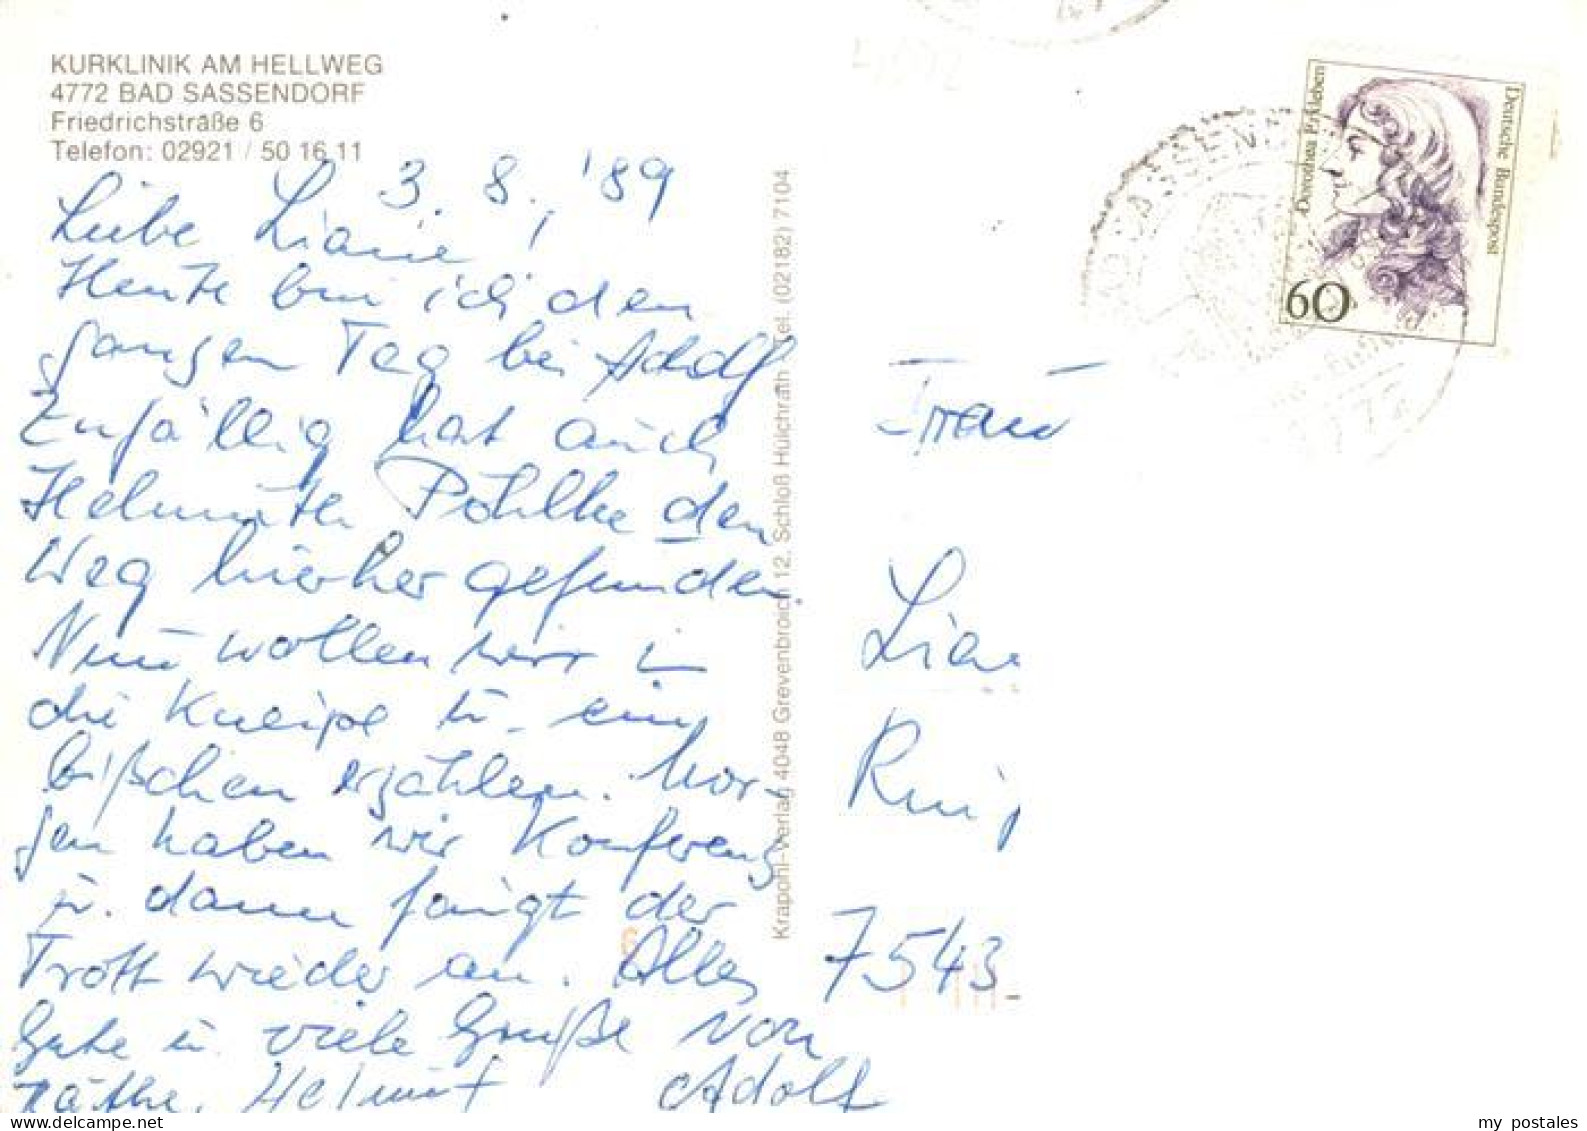 KURKLINIK AM HELLWEG
4772 BAD SASSENDORF
Friedrichstraße 6
Telefon: 02921 / 50 16 11
3. 8. '89
Liebe Liane!
Heute bin ich den
ganzen Tag bei Adolf
Zufällig hat auch
Helmuth Pöhlke den
Weg hierher gefunden.
Nun wollen wir in
die Kneipe u. ein
bißchen erzählen. Mor-
gen haben wir Konferenz
u. dann fängt der
Trott wieder an. Alles
Gute u. viele Grüße von
Käthe, Helmut Adolf
Krapohl-Verlag 4048 Grevenbroich 12, Schloß Hülchrath (Tel. (02182) 7104
Deutsche Bundespost
Dorothea Erxleben
60
Frau
Lian
7543
my postales